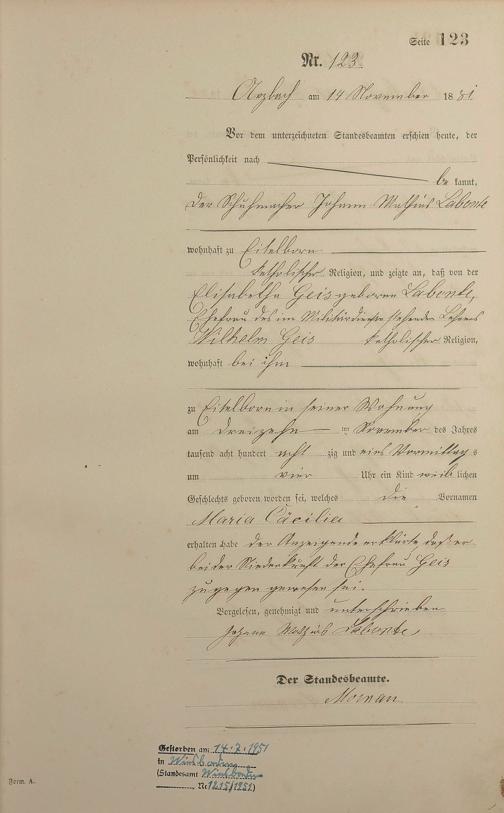 Seite 123
Nr. 123.
Arzbach am 14 November 1881
Vor dem unterzeichneten Standesbeamten erschien heute, der
Persönlichkeit nach
bekannt,
der Schuhmacher Johann Mathias Labonte
wohnhaft zu Eitelborn
katholischer Religion, und zeigte an, daß von der
Elisabetha Geis geborene Labonte,
Ehefrau des im Militärdienste stehenden
Wilhelm Geis katholischer Religion,
wohnhaft bei ihm
zu Eitelborn in seiner Wohnung
am dreizehn ten November des Jahres
tausend acht hundert acht zig und eins Vormittags
um vier Uhr ein Kind weiblichen
Geschlechts geboren worden sei, welches die Vornamen
Maria Cäcilia
erhalten habe der Anzeigende erklärte daß er
bei der Niederkunft der Ehefrau Geis
zugegen gewesen sei.
Vorgelesen, genehmigt und unterschrieben
Johann Mathias Labonte
Der Standesbeamte.
Gestorben am 14.2.1951
in
(Standesamt
Nr 1215/1951)
Form. A.